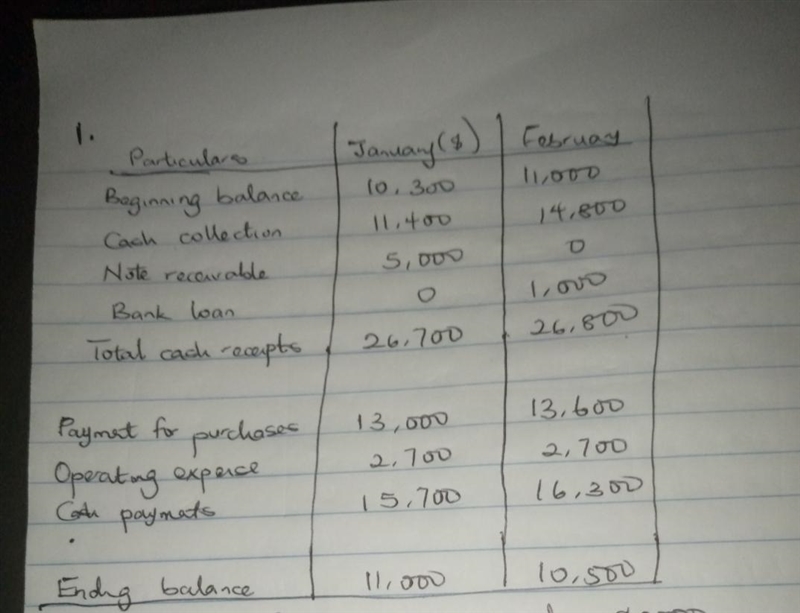 1.
Particulars January($) February
Beginning balance 10,300 11,000
Cash collection 11,400 14,800
Note receivable 5,000 0
Bank loan 0 1,000
Total cash receipts 26,700 26,800
Paymet for purchases 13,000 13,600
Operatng expence 2,700 2,700
Cash paymets 15,700 16,300
Endng balance 11,000 10,500